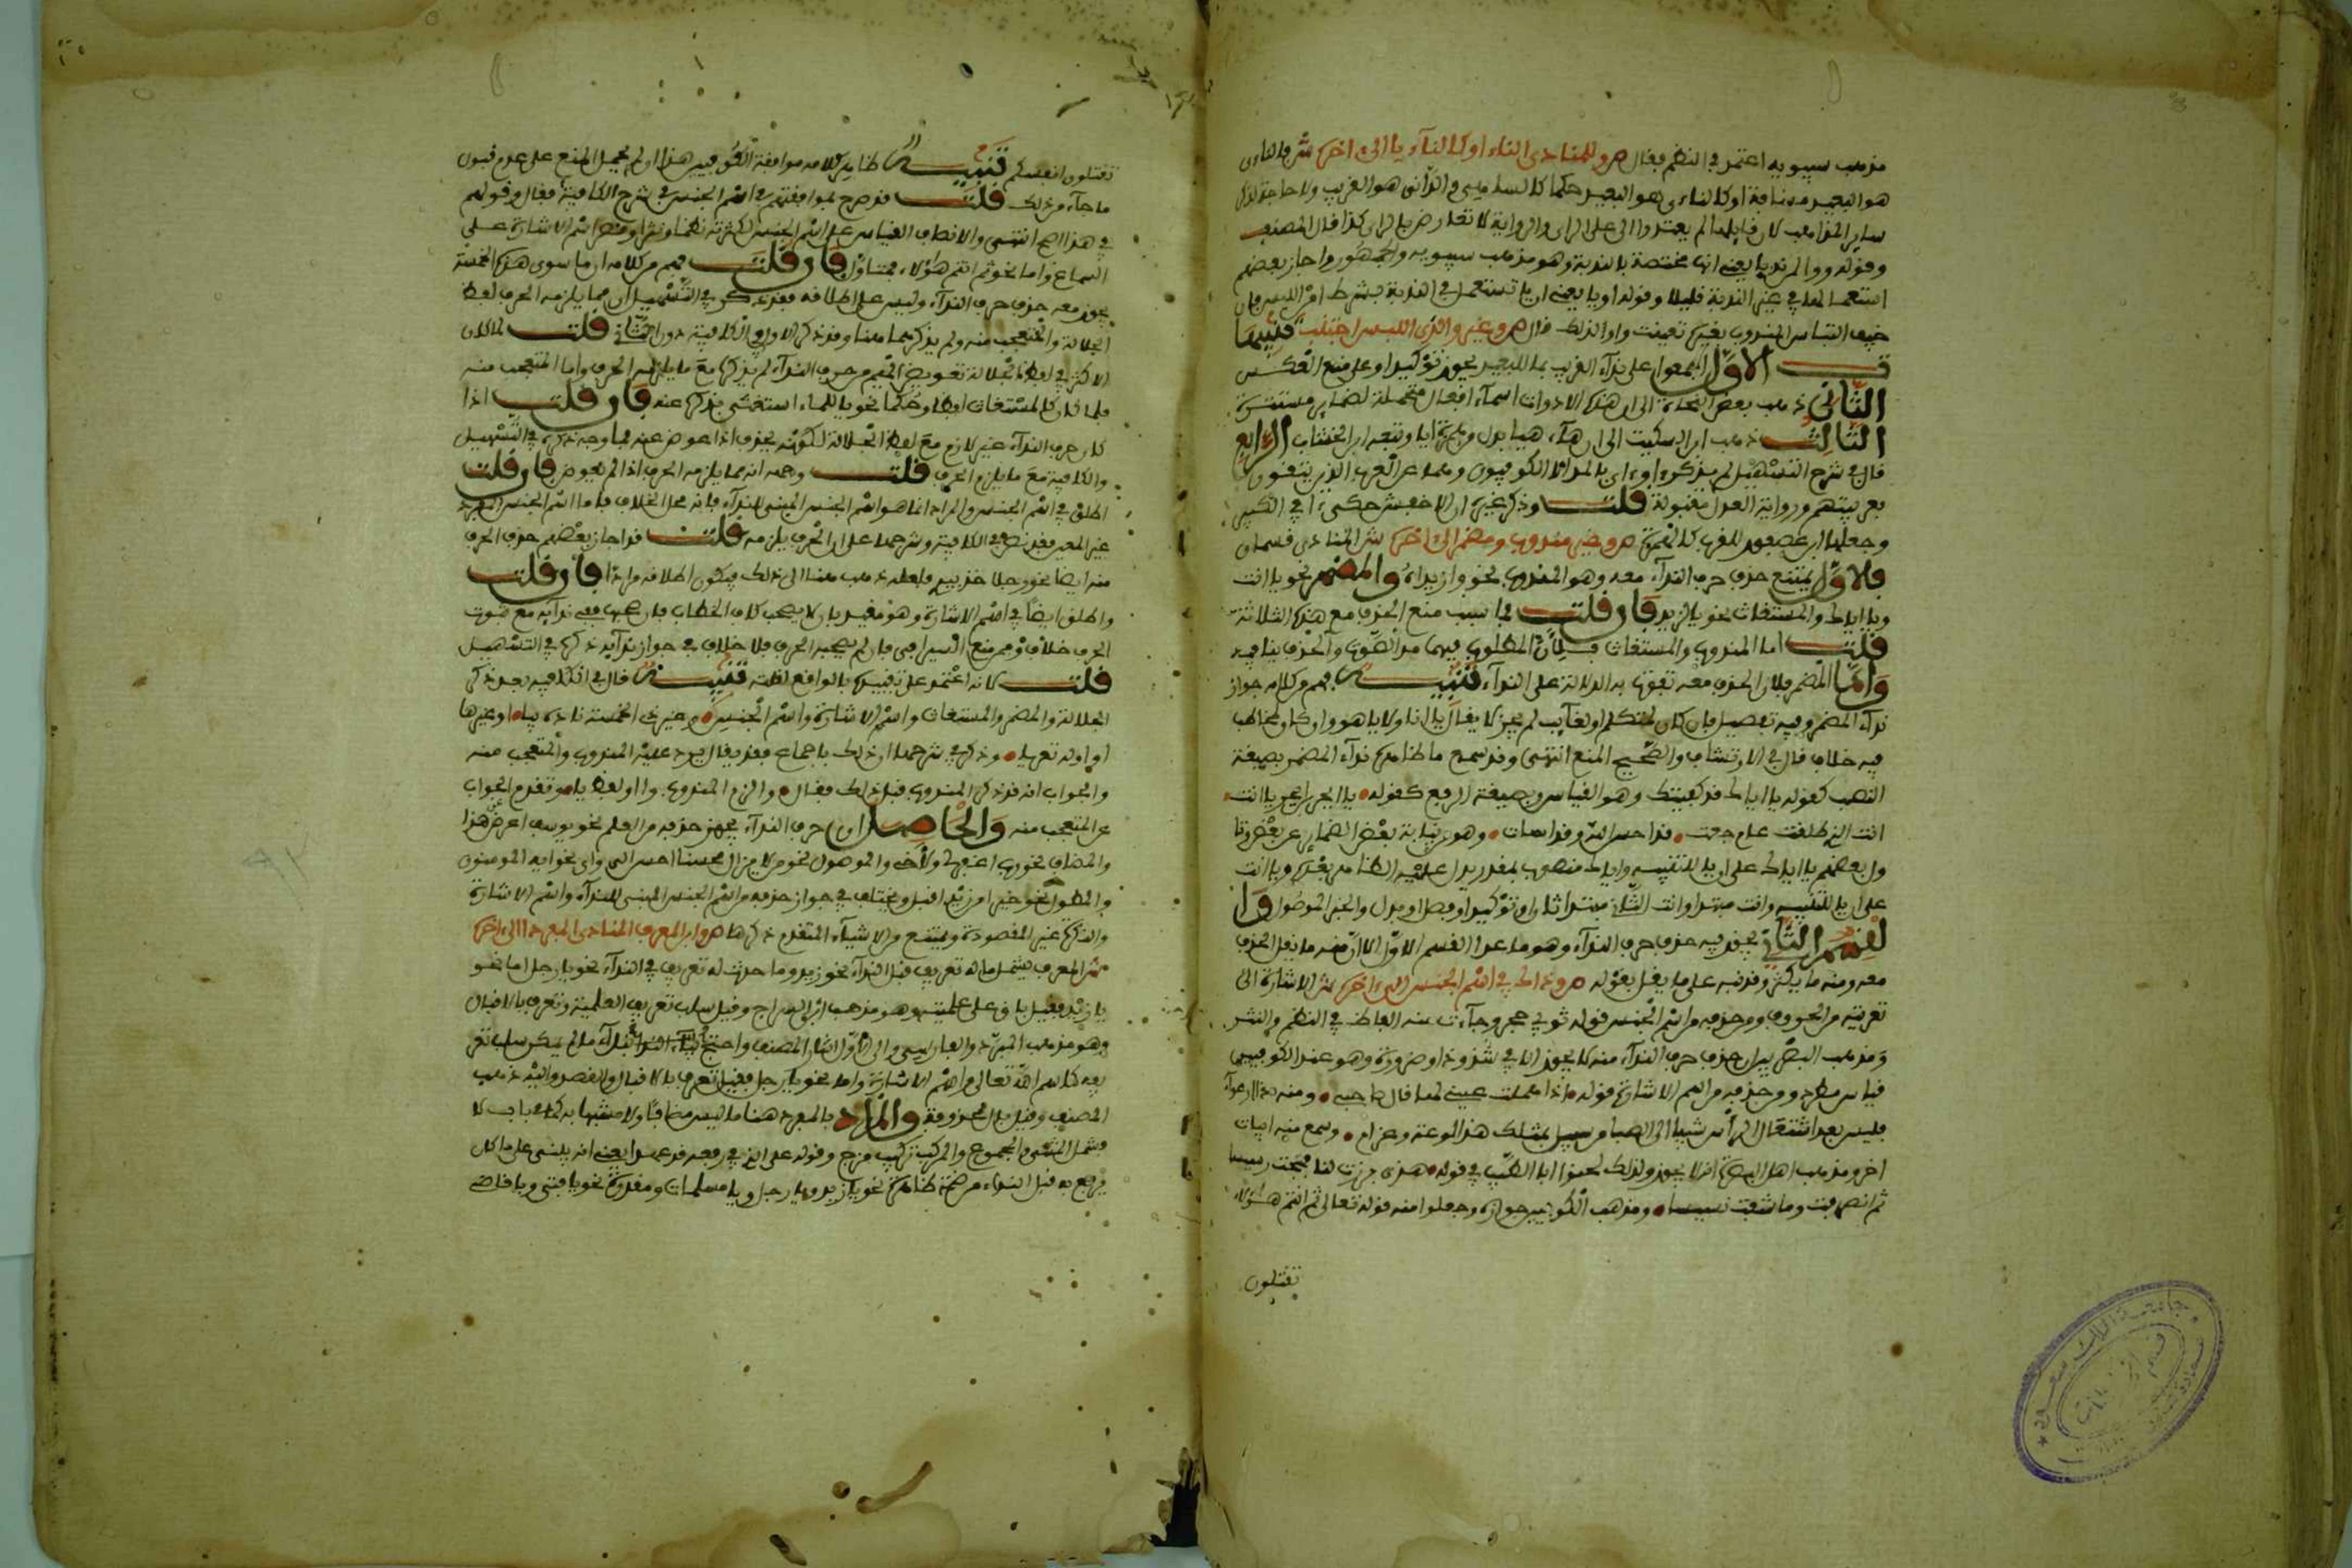 مذهب سيبويه اعتمد في النظم فقال ص وللمنادى الناء او كالناء يا الى اخره ش فالناءى
هو البعيد مسافة او كالناءى هو البعيد حكما كالساهي والداني هو القريب ولا حاجة لذكر
ساير المذاهب لان قايلها لم يعتمدوا الا على الراي والرواية لا تعارض بالراي كذا قال المصنف
وقوله ووا لمن ندبا يعني انها مختصة بالندبة وهو مذهب سيبويه والجمهور واجاز بعضهم
استعمالها في غير الندبة قليلا وقوله او يا يعني ان يا تستعمل في الندبة بشرط امن اللبس فان
خيف التباس المندوب بغيره تعينت وا ولذلك قال ص وغير وا لذى اللبس اجتنب تنبيها
ت الاول اجمعوا على نداء القريب بما للبعيد يجوز توكيدا وعلى منع العكس
الثاني ذهب بعض النحاة الى ان هذه الادوات اسماء افعال متحملة لضماير مستترة
الثالث ذهب ابن السكيت الى ان هاء هيا بدل من همزة ايا وتبعه ابن الخشاب الرابع
قال في شرح التسهيل لم يذكر ءا وءاى بالمد الا الكوفيون رووها عن العرب الذين يثقون
بعربيتهم ورواية العدل مقبولة قلت وذكر غيره ان الاخفش حكى ءا في الكبير
وجعلها ابن عصفور للقريب كالهمزة ص وغير مندوب ومضمر الى اخره ش المنادى قسمان
فالاول يمتنع حذف حرف النداء معه وهو المندوب نحو وا زيداه والمضمر نحو يا انت
ويا اياك والمستغاث نحو يا لزيد فان قلت فما سبب منع الحذف مع هذه الثلاثة
قلت اما المندوب والمستغاث فلان المطلوب فيهما مد الصوت والحذف ينافيه
واما المضمر فلان الحذف معه تفوت به الدلالة على النداء تنبيه فهم من كلامه جواز
نداء المضمر وفيه تفصيل فان كان لمتكلم او لغايب لم يجز لا يقال يا انا ولا يا هو وان كان لمخاطب
فيه خلاف قال في الارتشاف والصحيح المنع انتهى وقد سمع ما ظاهره نداء المضمر بصيغة
النصب كقوله يا اياك قد كفيتك وهو القياس وبصيغة الرفع كقوله يا ابجر ابن ابجر يا انت
انت الذي طلقت عام جعت قد احسن الله وقد اسات وهو من نيابة بعض الضماير عن بعض وتا
ول بعضهم يا اياك على ان يا للتنبيه واياك منصوب بمقدر يدل عليه الظاهر بعده ويا انت
على ان يا للتنبيه وانت مبتدا وانت الثاني مبتدا ثان او توكيد او فصل او بدل والخبر الموصول وا
لقسم الثاني يجوز فيه حذف حرف النداء وهو ما عدا القسم الاول الا ان منه ما يقل الحذف
معه ومنه ما يكثر وقد نبه على ما يقل بقوله ص وذاك في اسم الجنس الى اخره ش الاشارة الى
تعريته من الحروف ومن حذفه من اسم الجنس قوله ثوبي حجر وجاءت منه الفاظ في النظم والنثر
ومذهب البصريين ان حذف حرف النداء منه لا يجوز الا في شذوذ او ضرورة وهو عند الكوفيين
قياس مطرد ومن حذفه من اسم الاشارة قوله اذا هملت عيني لها قال صاحبي ومنه ذا ارعواء
فليس بعد اشتعال الراس شيبا الى الصبا من سبيل بمثلك هذا لوعة وغرام وسمع منه ابيات
اخر ومذهب اهل البصرة انه لا يجوز ولذلك لحنوا ابا الطيب في قوله هذى برزت لنا فهجت رسيسا
ثم انصرفت وما شفيت نسيسا ومذهب الكوفيين جوازه وجعلوا منه قوله تعالى ثم انتم هؤلاء
تقتلون
تقتلون انفسكم تنبيه ظاهر كلامه موافقة الكوفيين هذا ان لم يحمل المنع على عدم قبول
ما جاء من ذلك قلت قد صرح بموافقتهم في اسم الجنس في شرح الكافية فقال وقولهم
في هذا اصح انتهى والانصاف القياس على اسم الجنس لكثرته نظما ونثرا وقصر اسم الاشارة على
السماع واما نحو ثم انتم هؤلاء فمتاول فان قلت فهم من كلامه ان ما سوى هذه الخمسة
يجوز معه حذف حرف النداء وليس على اطلاقه فقد ذكر في التسهيل ان مما يلزمه الحرف لفظ
الجلالة والمتعجب منه ولم يذكرهما هنا وقد ذكر الاول في الكافية دون الثاني قلت لما كان
الاكثر في لفظ الجلالة تعويض الميم من حرف النداء لم يذكره مع ما يلزمه الحرف واما المتعجب منه
فلما كان كالمستغاث لفظا وحكما نحو يا للماء استغنى بذكره عنه فان قلت اذا
كان حرف النداء غير لازم مع لفظ الجلالة لكونه يحذف اذا عوض عنه فما وجه ذكره في التسهيل
والكافية مع ما يلزم الحرف قلت وجهه انه مما يلزمه الحرف اذا لم يعوض فان قلت
اطلق في اسم الجنس والمراد انما هو اسم الجنس المبني للنداء فانه محل الخلاف فاما اسم الجنس المفرد
غير المعين فقد نص في الكافية وشرحها على ان الحرف يلزمه قلت قد اجاز بعضهم حذف الحرف
منه ايضا نحو رجلا خذ بيدي فلعله ذهب هنا الى ذلك فيكون اطلاقه مرادا فان قلت
واطلق ايضا في اسم الاشارة وهو مقيد بان لا يصحب كاف الخطاب فان صحبها ففي ندايه مع ثبوت
الحرف خلاف وممن منع السيرافي فان لم يصحبه الحرف فلا خلاف في جواز ندايه ذكره في التسهيل
قلت كانه اعتمد على تقييده بالواقع لقلته تنبيه قال في الكافية بعد ذكر
الجلالة والمضمر والمستغاث واسم الاشارة واسم الجنس وغير ذي الخمسة ناده بيا او غيرها
او اوله تعريا وذكر في شرحها ان ذلك باجماع فقد يقال يرد عليه المندوب والمتعجب منه
والجواب انه قد ذكر المندوب قبل ذلك فقال والزم المندوب وا او لفظ يا وتقدم الجواب
عن المتعجب منه والحاصل ان حرف النداء يجوز حذفه من العلم نحو يوسف اعرض عن هذا
والمضاف نحو رب اغفر لي ولاخي والموصول نحو من لا يزال محسنا احسن الي واي نحو ايه المومنون
والمطول نحو خيرا من زيد اقبل ويختلف في جواز حذفه من اسم الجنس المبني للنداء واسم الاشارة
والنكرة غير المقصودة ويمتنع من الاشياء المتقدم ذكرها ص وابن المعرف المنادى المفردا الى اخره
ش المعرف يشمل ما له تعريف قبل النداء نحو زيد وما حدث له تعريف في النداء نحو يا رجل اما نحو
يا زيد فقيل باق على علميته وهو مذهب ابن السراج وقيل سلب تعريف العلمية وتعرف بالاقبال
وهو مذهب المبرد والفارسي والى الاول اشار المصنف واحتج بنداء ما لم يمكن سلب تعر
يفه كاسم الله تعالى واسم الاشارة واما نحو يا رجل فقيل تعرف بالاقبال والقصد واليه ذهب
المصنف وقيل بال المحذوفة والمراد بالمفرد هنا ما ليس مضافا ولا مشبها به كما في باب لا
فشمل المثنى والمجموع والمركب تركيب مزج وقوله على الذي في رفعه قد عهدا يعني انه يبنى على ما كان
يرفع به قبل النداء من ضمة ظاهرة نحو يا زيد ويا رجل ويا مسلمات ومقدرة نحو يا فتى ويا قاضي